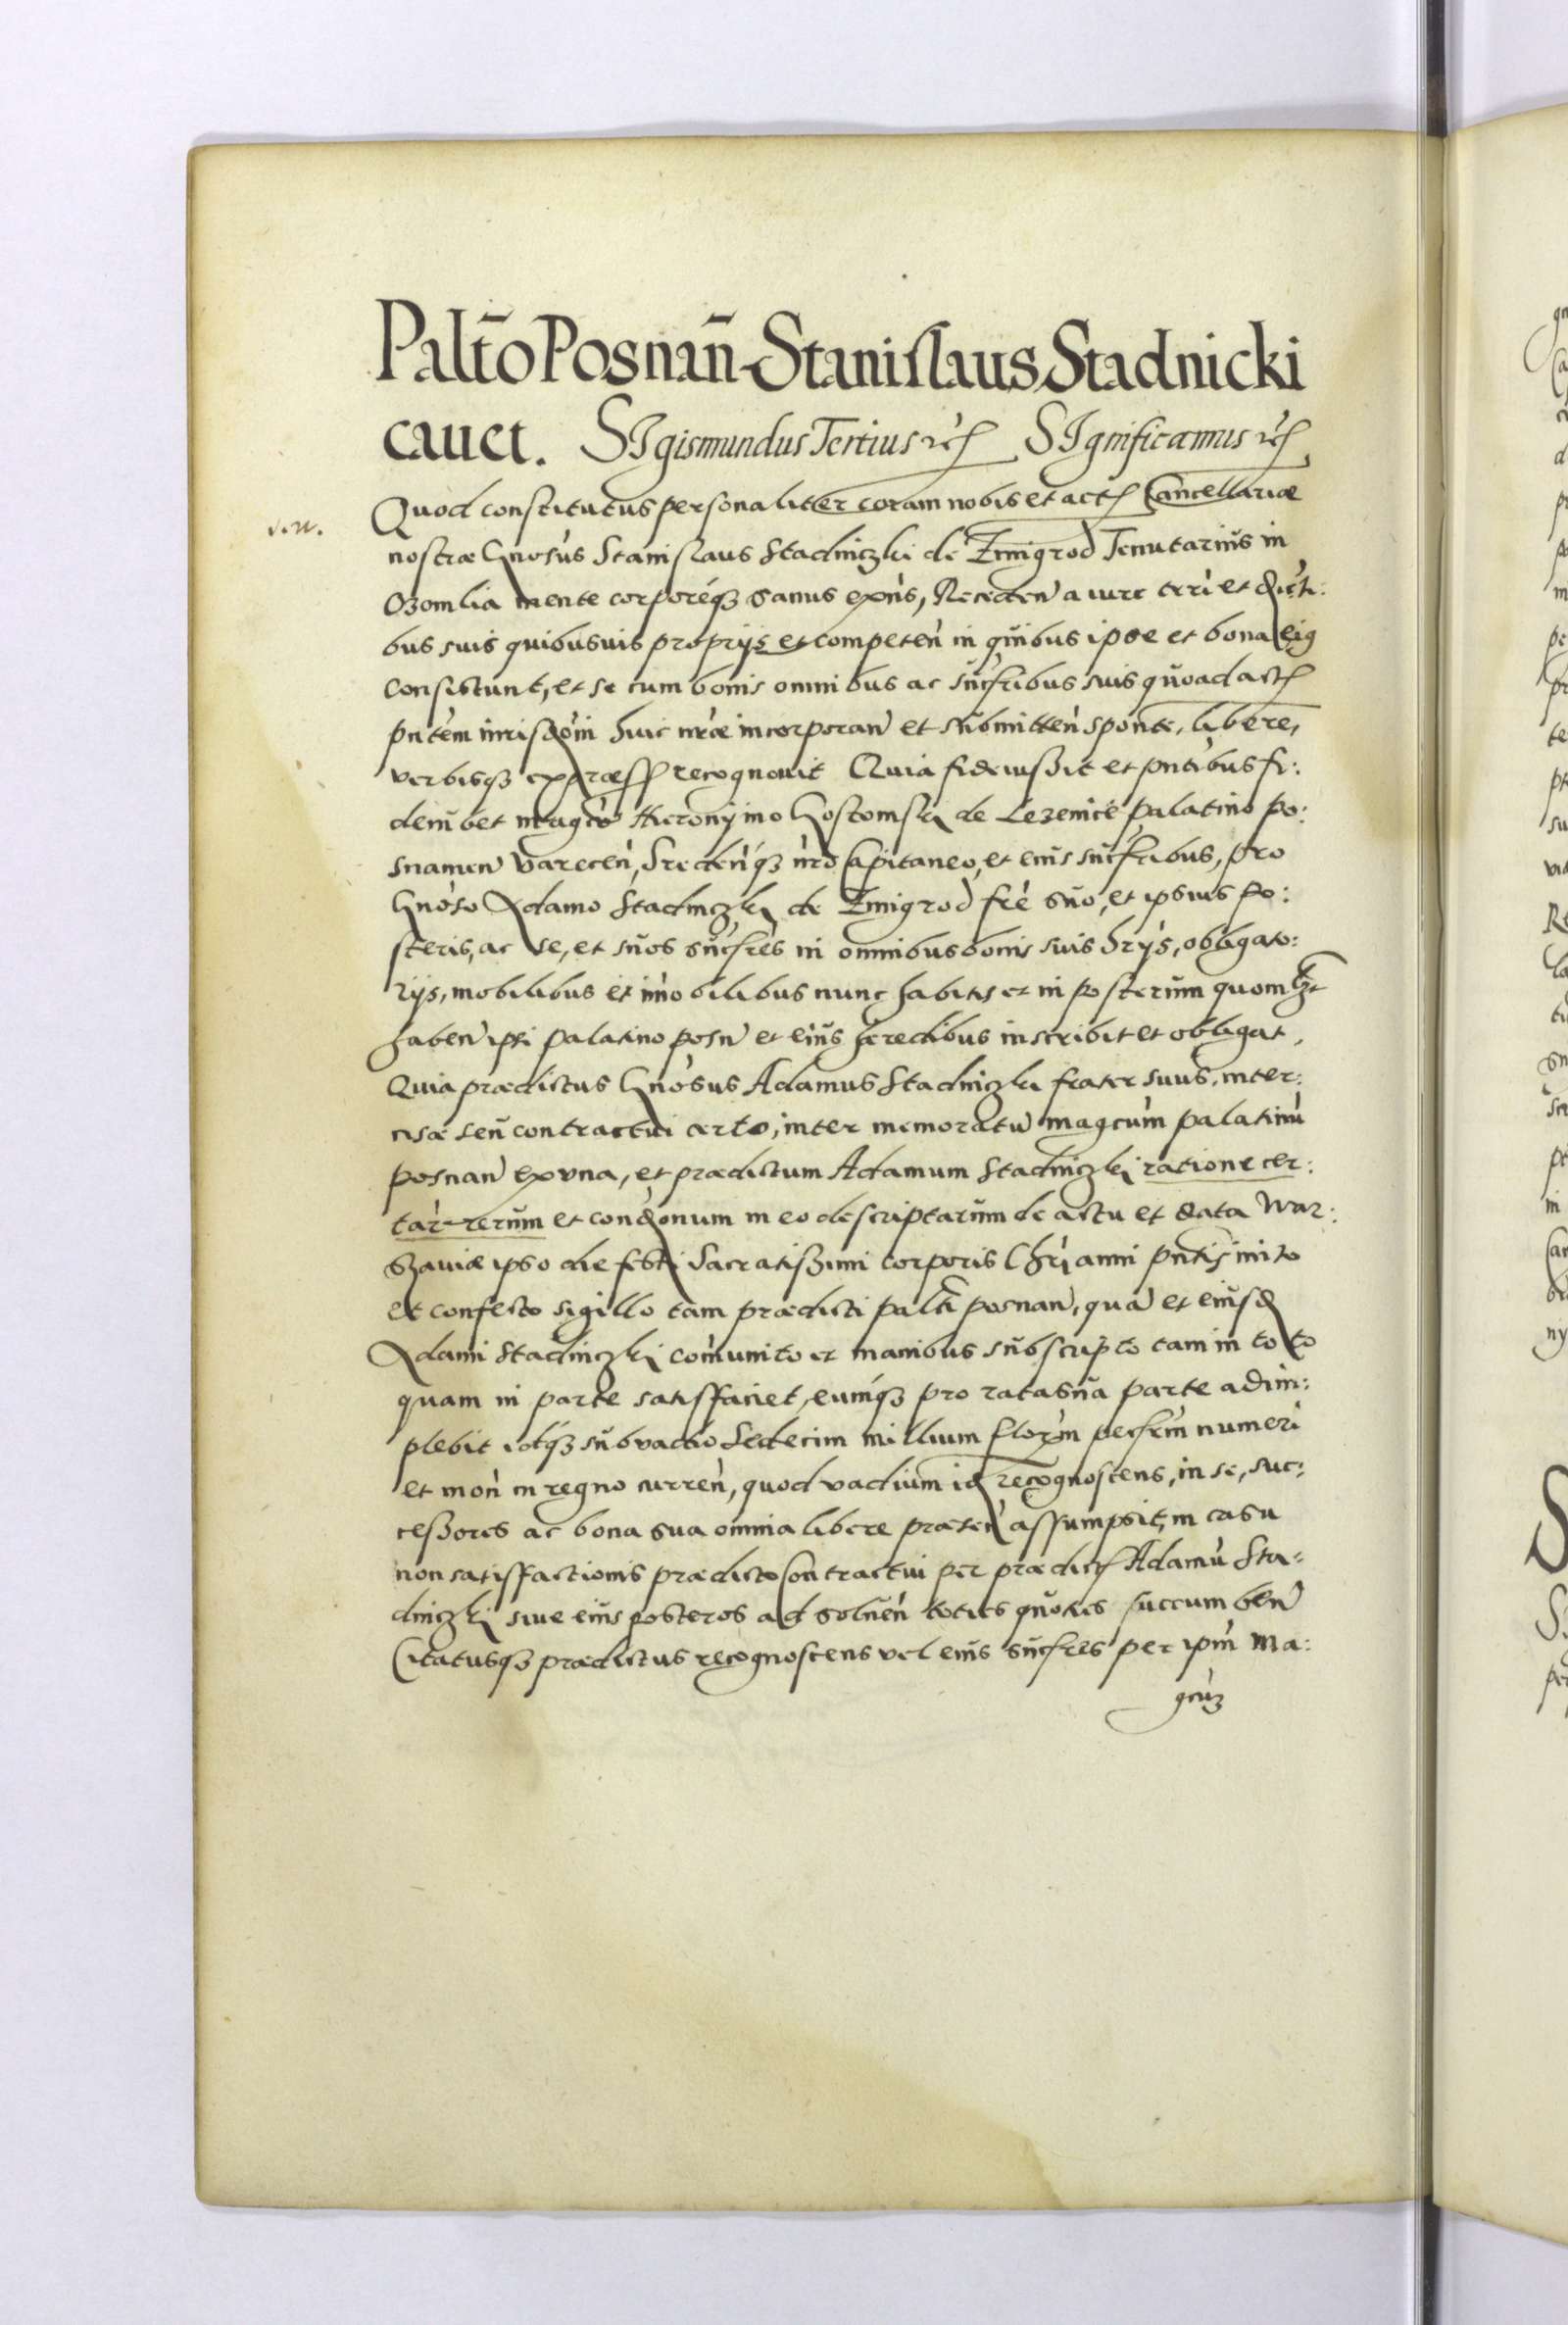 Palt̃o Posnan̄ Stanislaus Stadnicki
cauet. SIgismundus Tertius etc̃ SIgnificamus etc̃
Quod constitutus personaliter coram nobis et actis Cancellariæ
nostræ Gnosus Stanislaus Stadniczki de Zmigrod Tenutarius in
Ozomlia mente corporéq3 sanus exñs, Receden̄ a iure terri et
bus suis quibusuis proprijs et competen̄ in quibus ipse et bona eiq
consistunt, et se cum bonis omnibus ac sucſribus suis quoad actũ
pñtem huic nr̃æ incorporan̄ et submitten̄ sponte, libere,
verbisq3 expræss̃ recognouit Quia fideiussit et pñtibus fi:
deiubet magco Hieronÿmo Gostomski de Lezenice palatino po:
snanien̄ Varecen̄, Sredenq3 nr̃o Capitaneo, et eius sucſribus, pro
Gnoso Adamo Stadniczki de Zmigrod fr̃e suo, et ipsius po:
steris, ac se, et suos sucſres in omnibus bonis suis hrÿs, obligato:
rijs, mobilibus et im̃obilibus nunc habitis et in posterum quomlt
haben̄ ipsi palatino posn̄ et eius heredibus inscribit et obligat,
Quia prædictus Gnosus Adamus Stadniczki frater suus, inter:
cisæ seu contractui certo, inter memoratũ magcum palatinũ
posnan̄ ex vna, et prædictum Adamum Stadniczki ratione cer:
tar̃ rerum et condõnum in eo descriptarum de actu et data War:
szauiæ ipso die festi Sacratissimi corporis Chri anni pñtis inito
et confecto sigillo tam prædicti palti posnan̄, quã et eiusd̃
Adami Stadniczki com̃unito et manibus subscripto tam in toto
quam in parte satisfaciet, eumq3 pro rata sua parte adim:
plebit idq3 sub vadio Sedecim millium flor̃m numeri
et mon̄ in regno curren̄, quod vadium id̃ recognoscens, in se, suc:
cessores ac bona sua omnia libere præsen̄ assumpsit, in casu
non satisfactionis prædicto contractui per prædict̃ Adamũ Sta:
dniczki siue eius posteros ad soluen̄ toties quoties succumben̄
Citatusq3 prædictus recognoscens vel eius sucſres per ipm̃ Ma:
gcu3